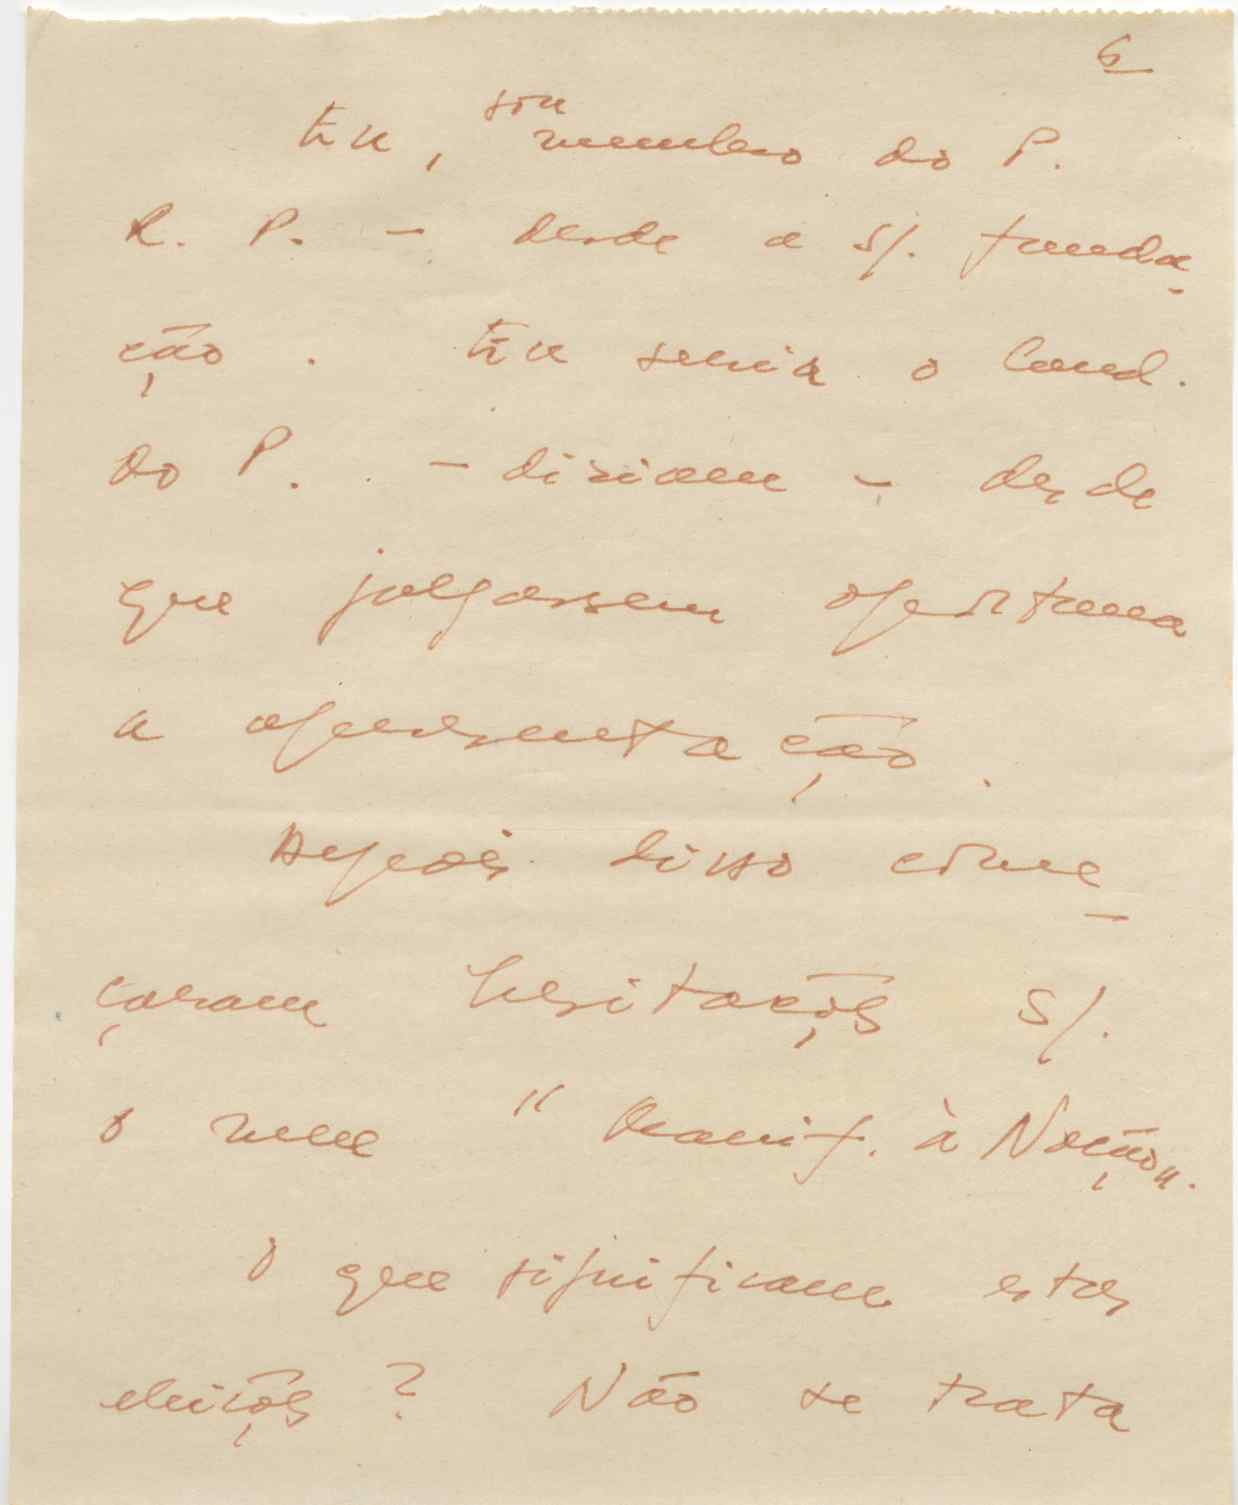 6
sou
Eu, membro do P.
R. P. - desde a s/. funda-
ção. Eu seria o Cand.
do P. - diziam - desde
que julgassem oportuna
a apresentação.
Depois disso come-
çaram hesitações s/.
o meu "Manif. à Nação".
O que significam estas
eleições? Não se trata